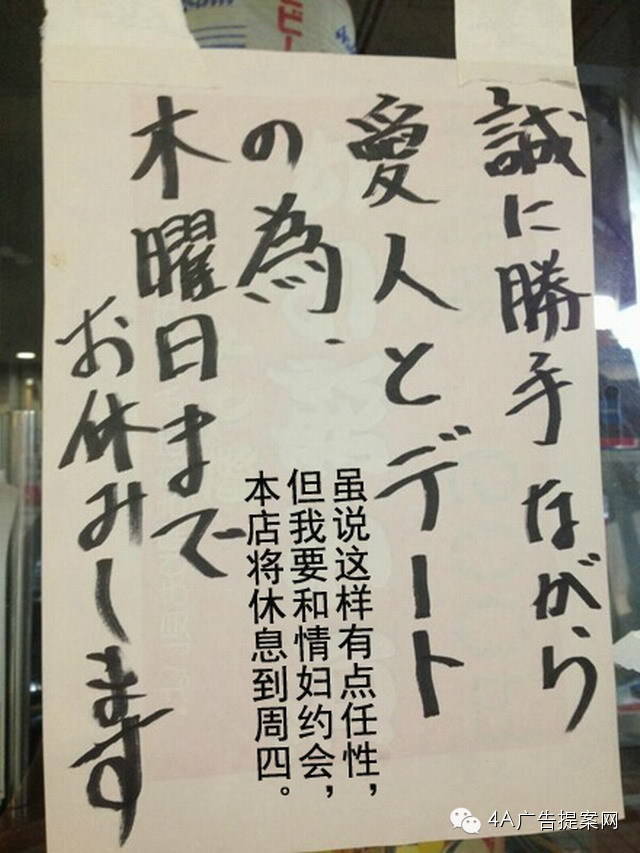 誠に勝手ながら
愛人とデート
の為、
木曜日まで
お休みします
虽说这样有点任性，
但我要和情妇约会，
本店将休息到周四。
4A广告提案网